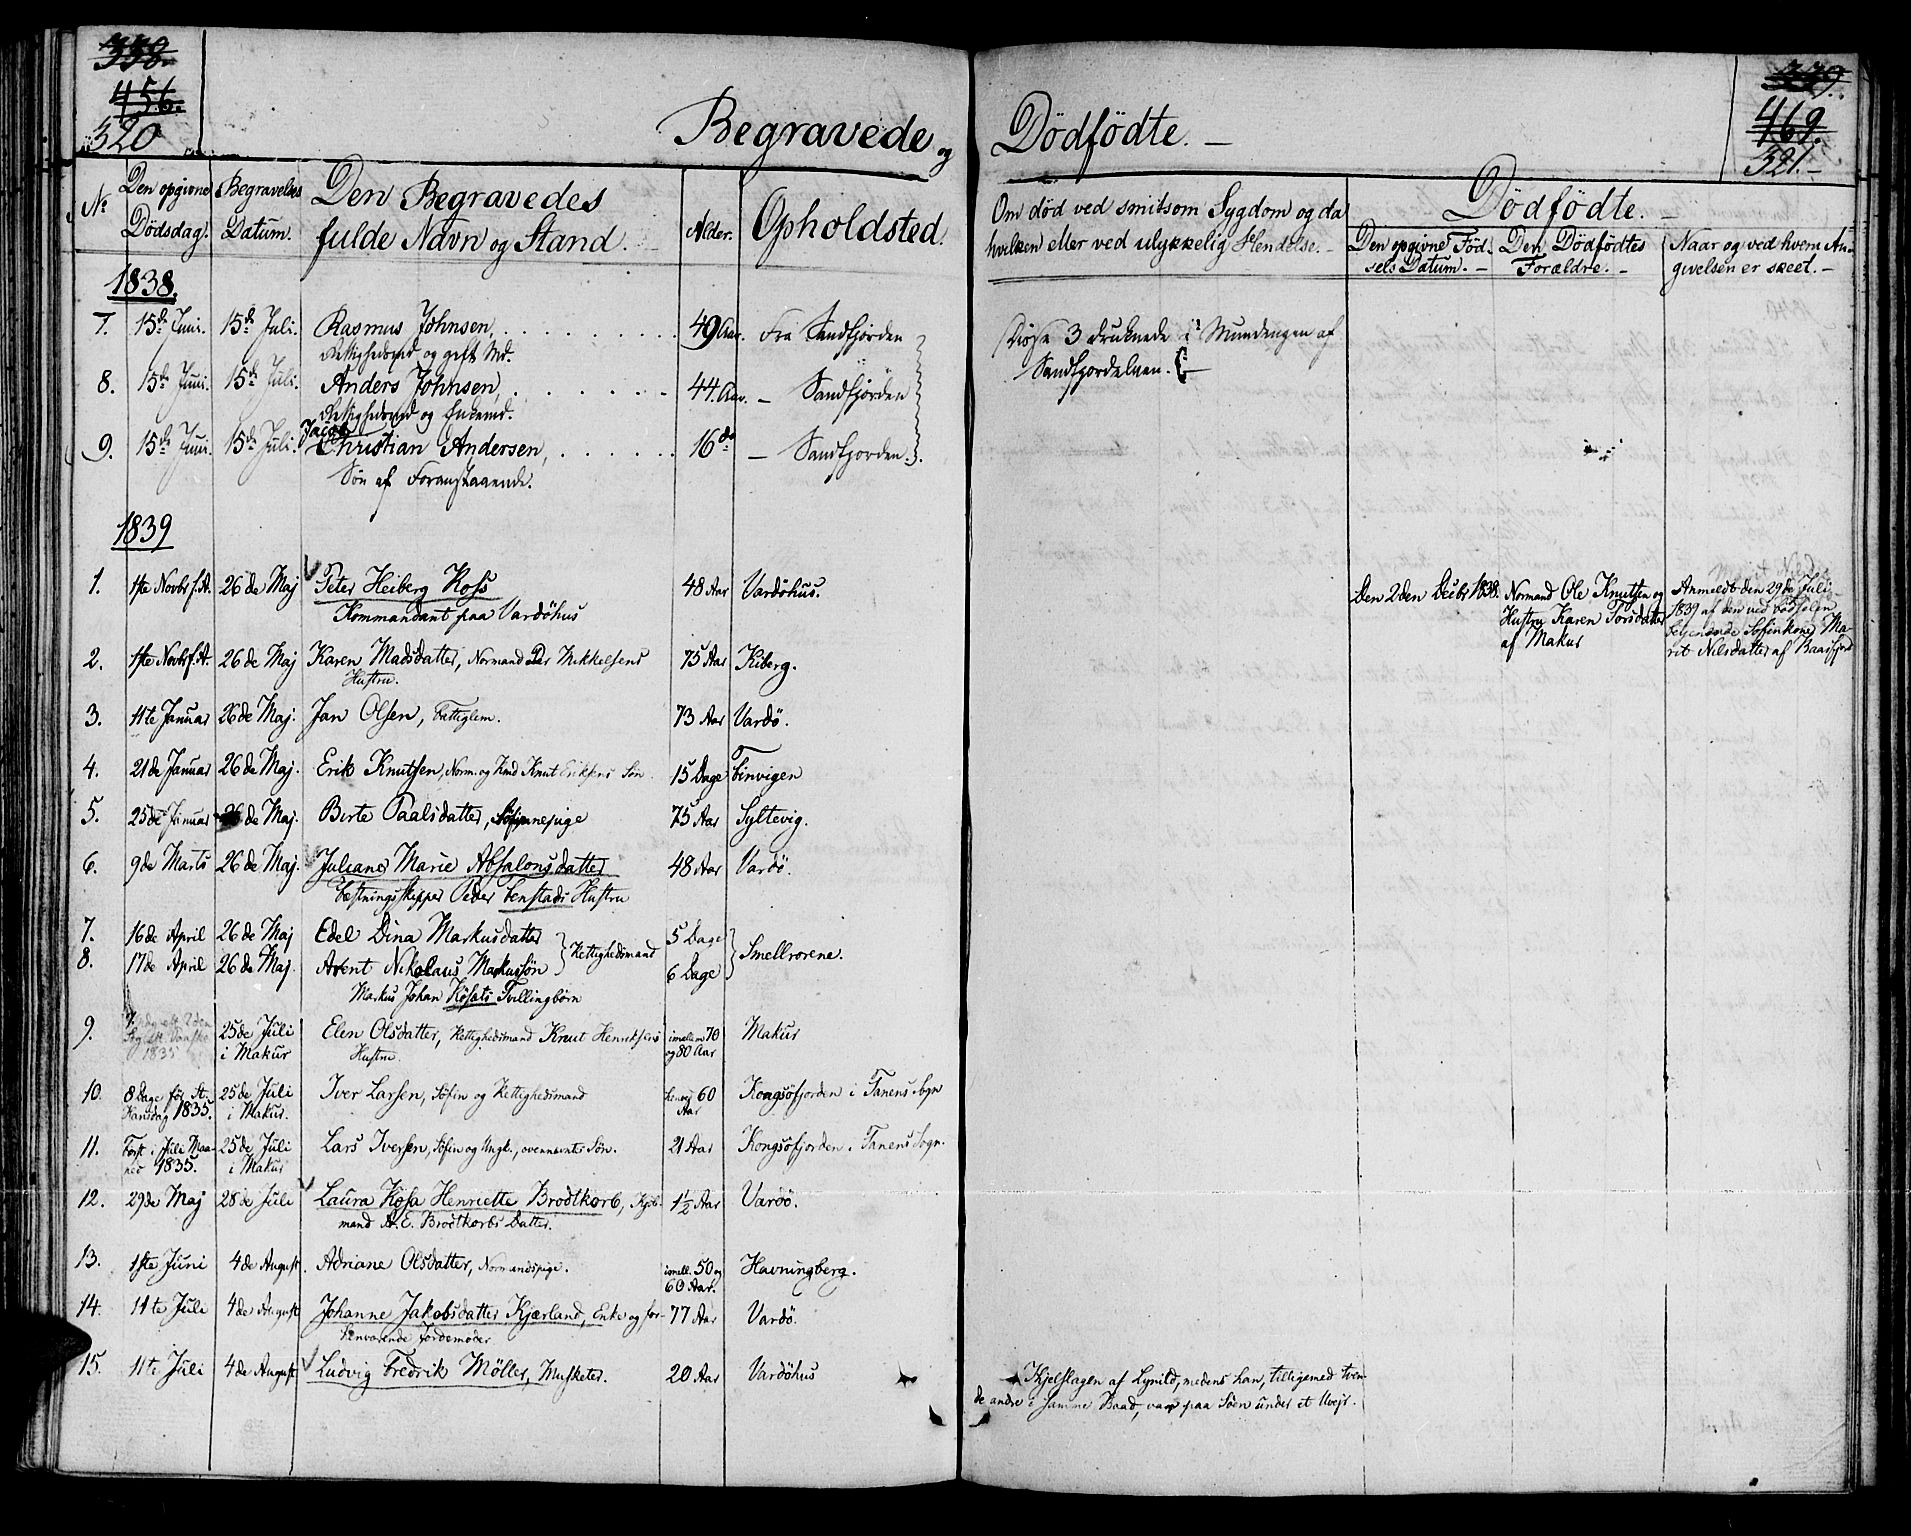 338.
456.
320
Begravede og Dödfödte. —
339.
469.
321. —
No
Den opgivne Dödsdag.
Begravelses Datum.
Den Begravedes fulde Navn og Stand.
Alder.
Opholdsted.
Om död ved smitsom Sygdom og da hvilken eller ved ulykkelig Hendelse. —
Dödfödte. —
Den opgivne Födsels Datum. —
Den Dödfödtes Forældre. —
Naar og ved hvem Angivelsen er skeet. —
1838.
7. 15de Juni. 15de Juli. Rasmus Johnsen, 49 Aar. Fra Sandfjorden
Rettighedsmd og gift Md.
Disse 3 druknede i Mundingen af
Sandfjordelven.
8. 15de Juni. 15de Juli. Anders Johnsen, 44. Aar. — Sandfjorden
Rettighedsmd og Enkemd.
9. 15de Juni. 15de Juli. Jacob Christian Andersen, 16 do — Sandfjorden.
Sön af Foranstaaende.
1839
1. 1ste Novbr f. A. 26de Maj Peter Heiberg Ross 48 Aar Vardöhus.
Kommandant paa Vardöhus
Den 2den Decbr 1838. Normand Ole Knutsen og
Hustru Karen Torsdatter
af Makur
Anmeldt den 29de Juli
1839 af den ved Födselen
betjenende Söfinkone Ma-
rit Nilsdatter af Baasfjord
2. 1ste Novbr f. A. 26de Maj Karen Madsdatter, Normand Per Mikkelsens 75 Aar Kiberg.
Hustru.
3. 11te Januar 26de Maj. Jan Olsen, Fattiglem. 73 Aar Vardö.
4. 21de Januar 26de Maj. Erik Knutsen, Norm. og Kmd Knut Eriksens Sön 15 Dage Finvigen
5. 25de Januar 26de Maj. Birte Paalsdatter, Söfinnepige 75 Aar Syltevig.
6. 9de Marts 26de Maj. Juliane Marie Absalonsdatter 48 Aar Vardö.
Fæstningsskipper Peder Fenstads Hustru
7. 16de April 26de Maj Edel Dina Markusdatter 5 Dage
8. 17de April 26de Maj. Arent Nikolaus Markussön Rettighedsmand 6 Dage Smellrorene.
Markus Johan Kösats Tvillingbörn
9. 1835 25de Juli i Makur Elen Olsdatter, Rettighedsmand Knut Henriksens imellem 70 og 80 Aar Makur
Hustru
10. 8 Dage för St. Hansdag 1835. 25de Juli i Makur. Iver Larsen, Söfin og Rettighedsmand 60 Aar Kongsöfjorden i Tanens Sogn
11. Först i Juli Maaned 1835. 25de Juli i Makur Lars Iversen, Söfin og Ungk., ovennævntes Sön. 21 Aar Kongsöfjorden i Tanens Sogn.
12. 29de Maj 28de Juli Laura Rosa Henriette Brodtkorb, Kjöb- 1½ Aar Vardö.
mand A. E. Brodtkorbs Datter.
13. 1ste Juni 4de August. Adriane Olsdatter, Normandspige. imell. 50 og 60 Aar. Havningberg.
14. 11te Juli 4de August Johanne Jakobsdatter Kjærland, Enke og for- 77 Aar Vardö.
henværende Jordemoder
15. 11te Juli 4de August Ludvig Fredrik Möller, Musketer. 20 Aar Vardöhus
Ihjelslagen af Lynild, medens han, tilligemed tven-
de andre i samme Baad, var paa Söen under et Uvejr.